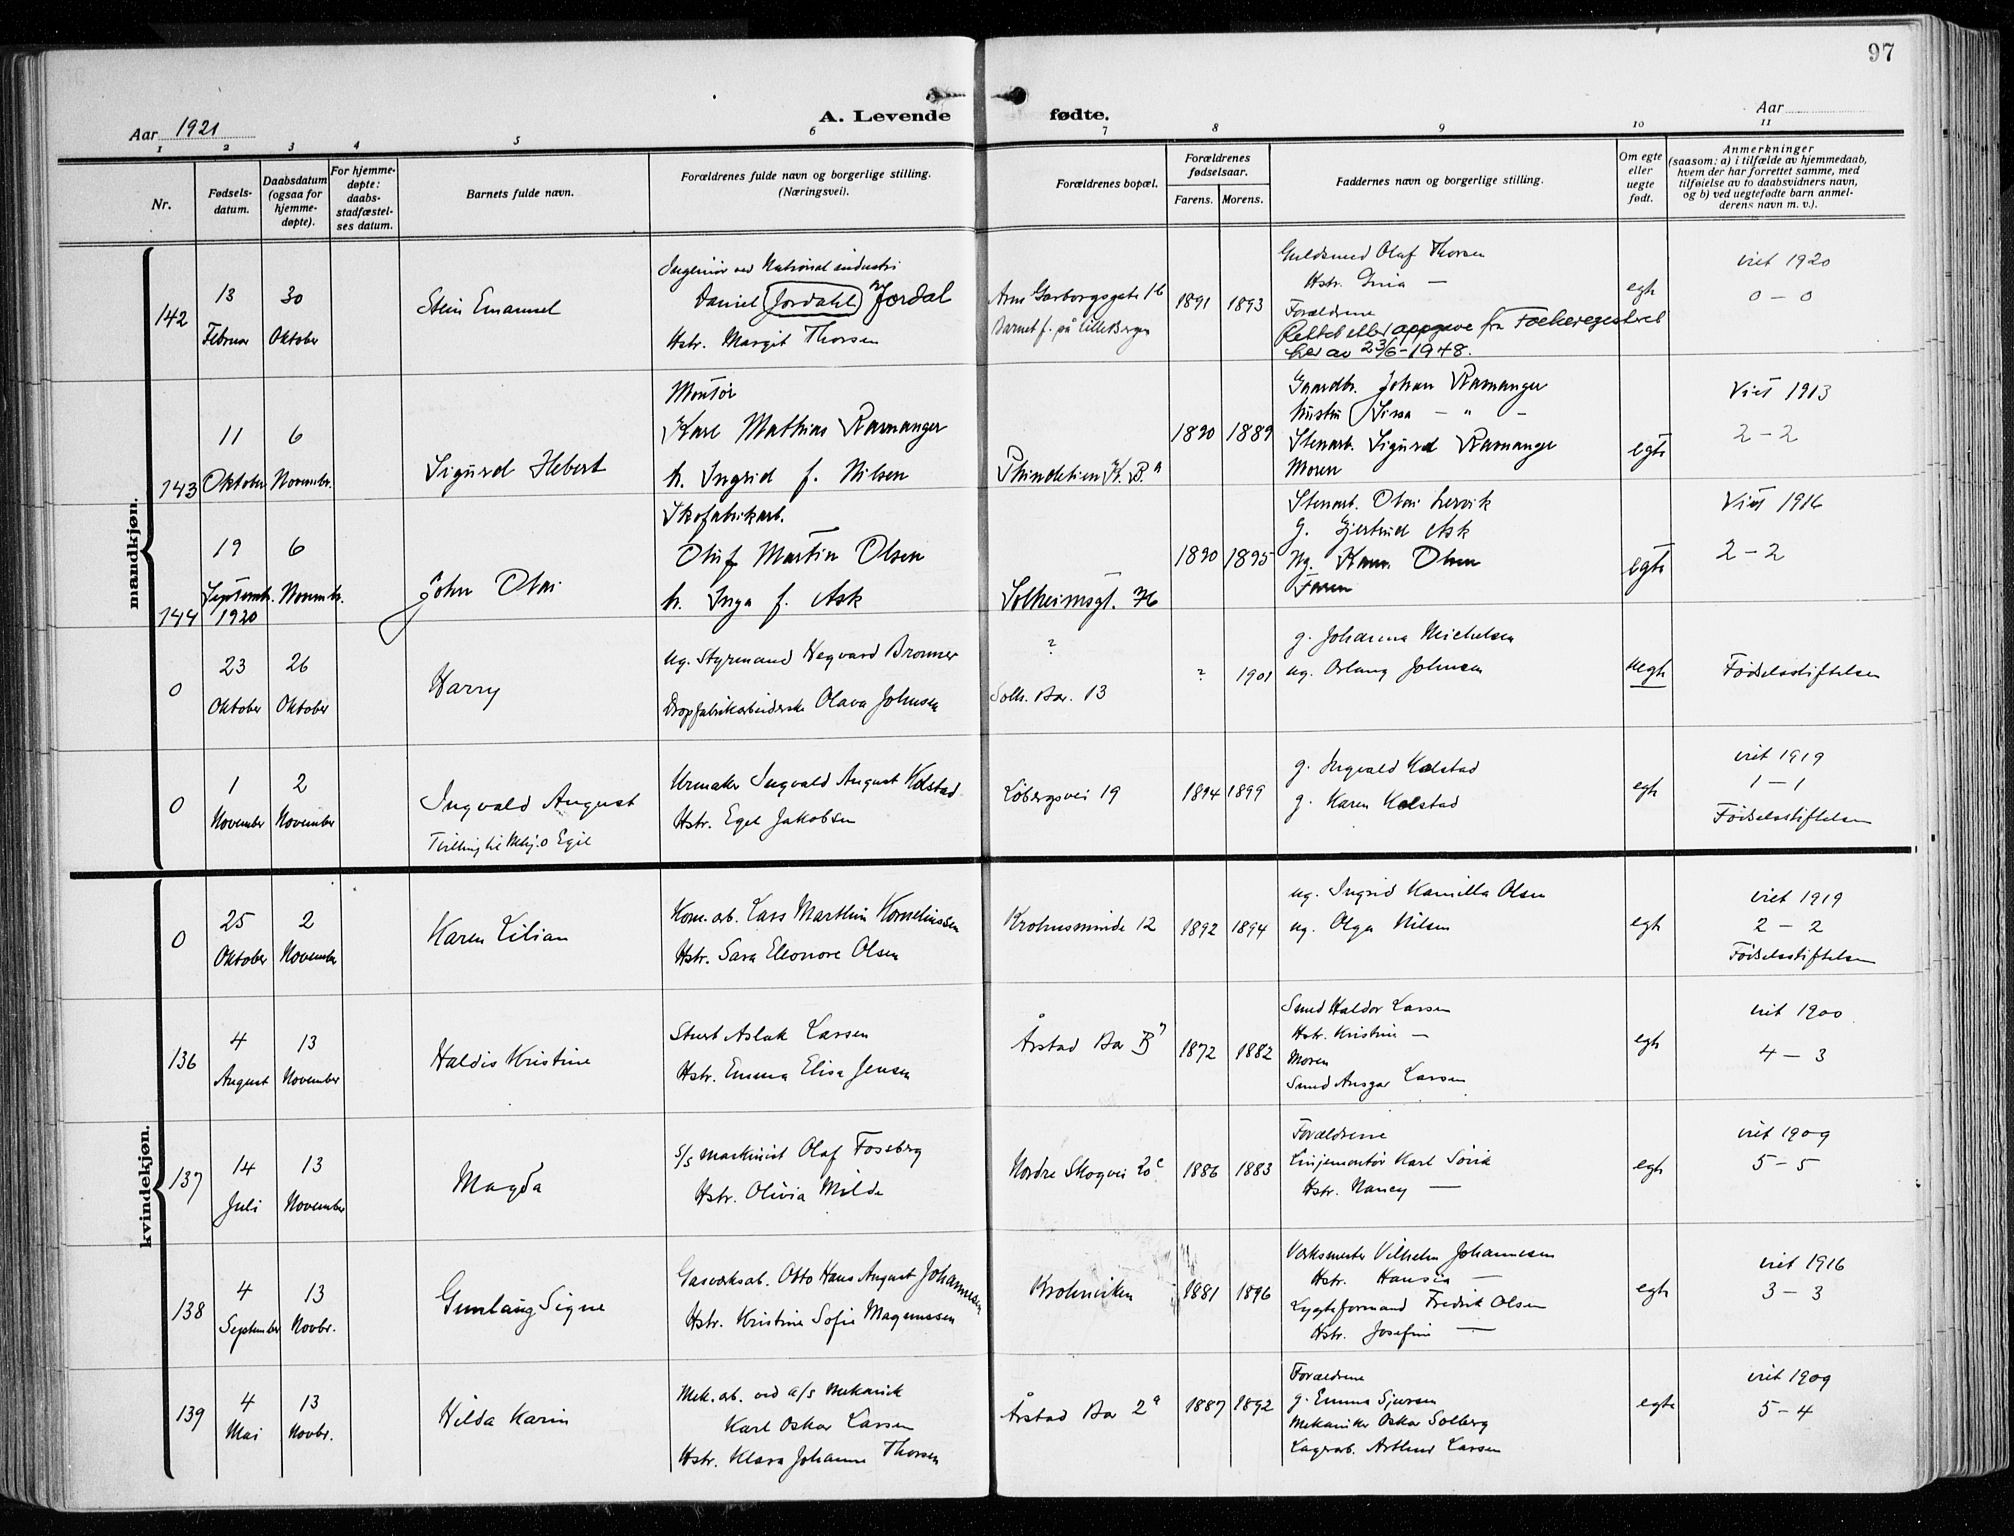 97
Aar 1921
A. Levende fødte.
Aar
1 2 3 4 5 6 7 8 9 10 11
Nr.
Fødsels-
datum.
Daabsdatum
(ogsaa for
hjemme-
døpte).
For hjemme-
døpte:
daabs-
stadfæstel-
ses datum.
Barnets fulde navn.
Forældrenes fulde navn og borgerlige stilling.
(Næringsvei).
Forældrenes bopæl.
Forældrenes
fødselsaar.
Farens. Morens.
Faddernes navn og borgerlige stilling.
Om egte
eller
uegte
født.
Anmerkninger
(saasom: a) i tilfælde av hjemmedaab,
hvem der har forrettet samme, med
tilføielse av to daabsvidners navn,
og b) ved uegtefødte barn anmel-
derens navn m. v.).
mandkjøn.
142
13
Februar
30
Oktober
Stein Emanuel
Ingeniør ved National industri
Daniel Jordahl Jordal
Hstr. Margit Thorsen
Arne Garborgsgate 16
Barnet f. på Lille Bergen
1891 1893
Guldsmed Olaf Thorsen
Hstr. —
Forældrene
Rettet eller oppgave fra Folkeregisteret
her av 23/6-1948.
egte
viet 1920
0 – 0
143
11
Oktober
6
Novembr.
Sigurd Hebert
Montør
Karl Mathias Ramanger
h. Ingrid f. Nilsen
1890 1889
Gaardbr. Johan Ramanger
Hustru Lissa — " —
Stenarb. Sigurd Ramanger
Moren
egte
Viet 1913
2 – 2
144
19
Septembr.
1920
6
Novembr.
John Olai
Skofabrikarb.
Oluf Martin Olsen
h. Inga f. Ask
Solheimsgt. 76
1890 1895
Stenarb. Olai Lervik
G. Gjertrud Ask
Ug. Karen Olsen
Faren
egte
Viet 1916
2 – 2
0
23
Oktober
26
Oktober
Harry
ug. Styrmand Hegvard Bronner
Dropsfabrikarbeiderske Olava Johnsen
?
Solh. Bar. 13
? 1901
g. Johanna Michelsen
ug. Aslaug Johnsen
uegte
Fødselsstiftelsen
0
1
November
2
November
Ingvald August
Tvilling til Mkj. 0 Egil
Urmaker Ingvald August Kolstad
Hstr. Egel Jakobsen
Løbergsvei 19
1894 1899
g. Ingvald Kolstad
g. Karen Kolstad
egte
viet 1919
1 – 1
Fødselsstiftelsen
kvindekjøn.
0
25
Oktober
2
November
Karen Lilian
Kom. arb. Lars Marthin Korneliussen
Hstr. Sara Eleonore Olsen
Krohnsminde 12
1892 1894
ug. Ingrid Kamilla Olsen
ug. Olga Nilsen
egte
viet 1919
2 – 2
Fødselsstiftelsen
136
4
August
13
November
Haldis Kristine
Stuert Aslak Larsen
Hstr. Emma Elisa Jensen
Årstad Bar B
1872 1882
Smed Haldor Larsen
Hstr. Kristine —
Moren
Smed Ansgar Larsen
egte
viet 1900
4 – 3
137
14
Juli
13
November
Magda
S/S maskinist Olaf Fossberg
Hstr. Olivia Milde
Nordre Skogvei 20c
1886 1883
Forældrene
Linjemontør Karl Sörik
Hstr. Nancy —
egte
viet 1909
5 – 5
138
4
September
13
Novbr.
Gunlaug Signe
Gasverksarb. Otto Hans August Johannesen
Hstr. Kristine Sofie Magnussen
Krohnviken
1881 1896
Verksmester Vilhelm Johannesen
Hstr. Hansia —
Lygteformand Fredrik Olsen
Hstr. Josefine —
egte
viet 1916
3 – 3
139
4
Mai
13
Novbr.
Hilda Karin
Mek. arb. ved a/s Mekanik
Karl Oskar Larsen
Hstr. Klara Johanne Thorsen
Årstad Bar 2a
1887 1892
Forældrene
g. Emma Sjursen
Mekaniker Oskar Solberg
Lagerarb. Arthur Larsen
egte
viet 1909
5 – 4